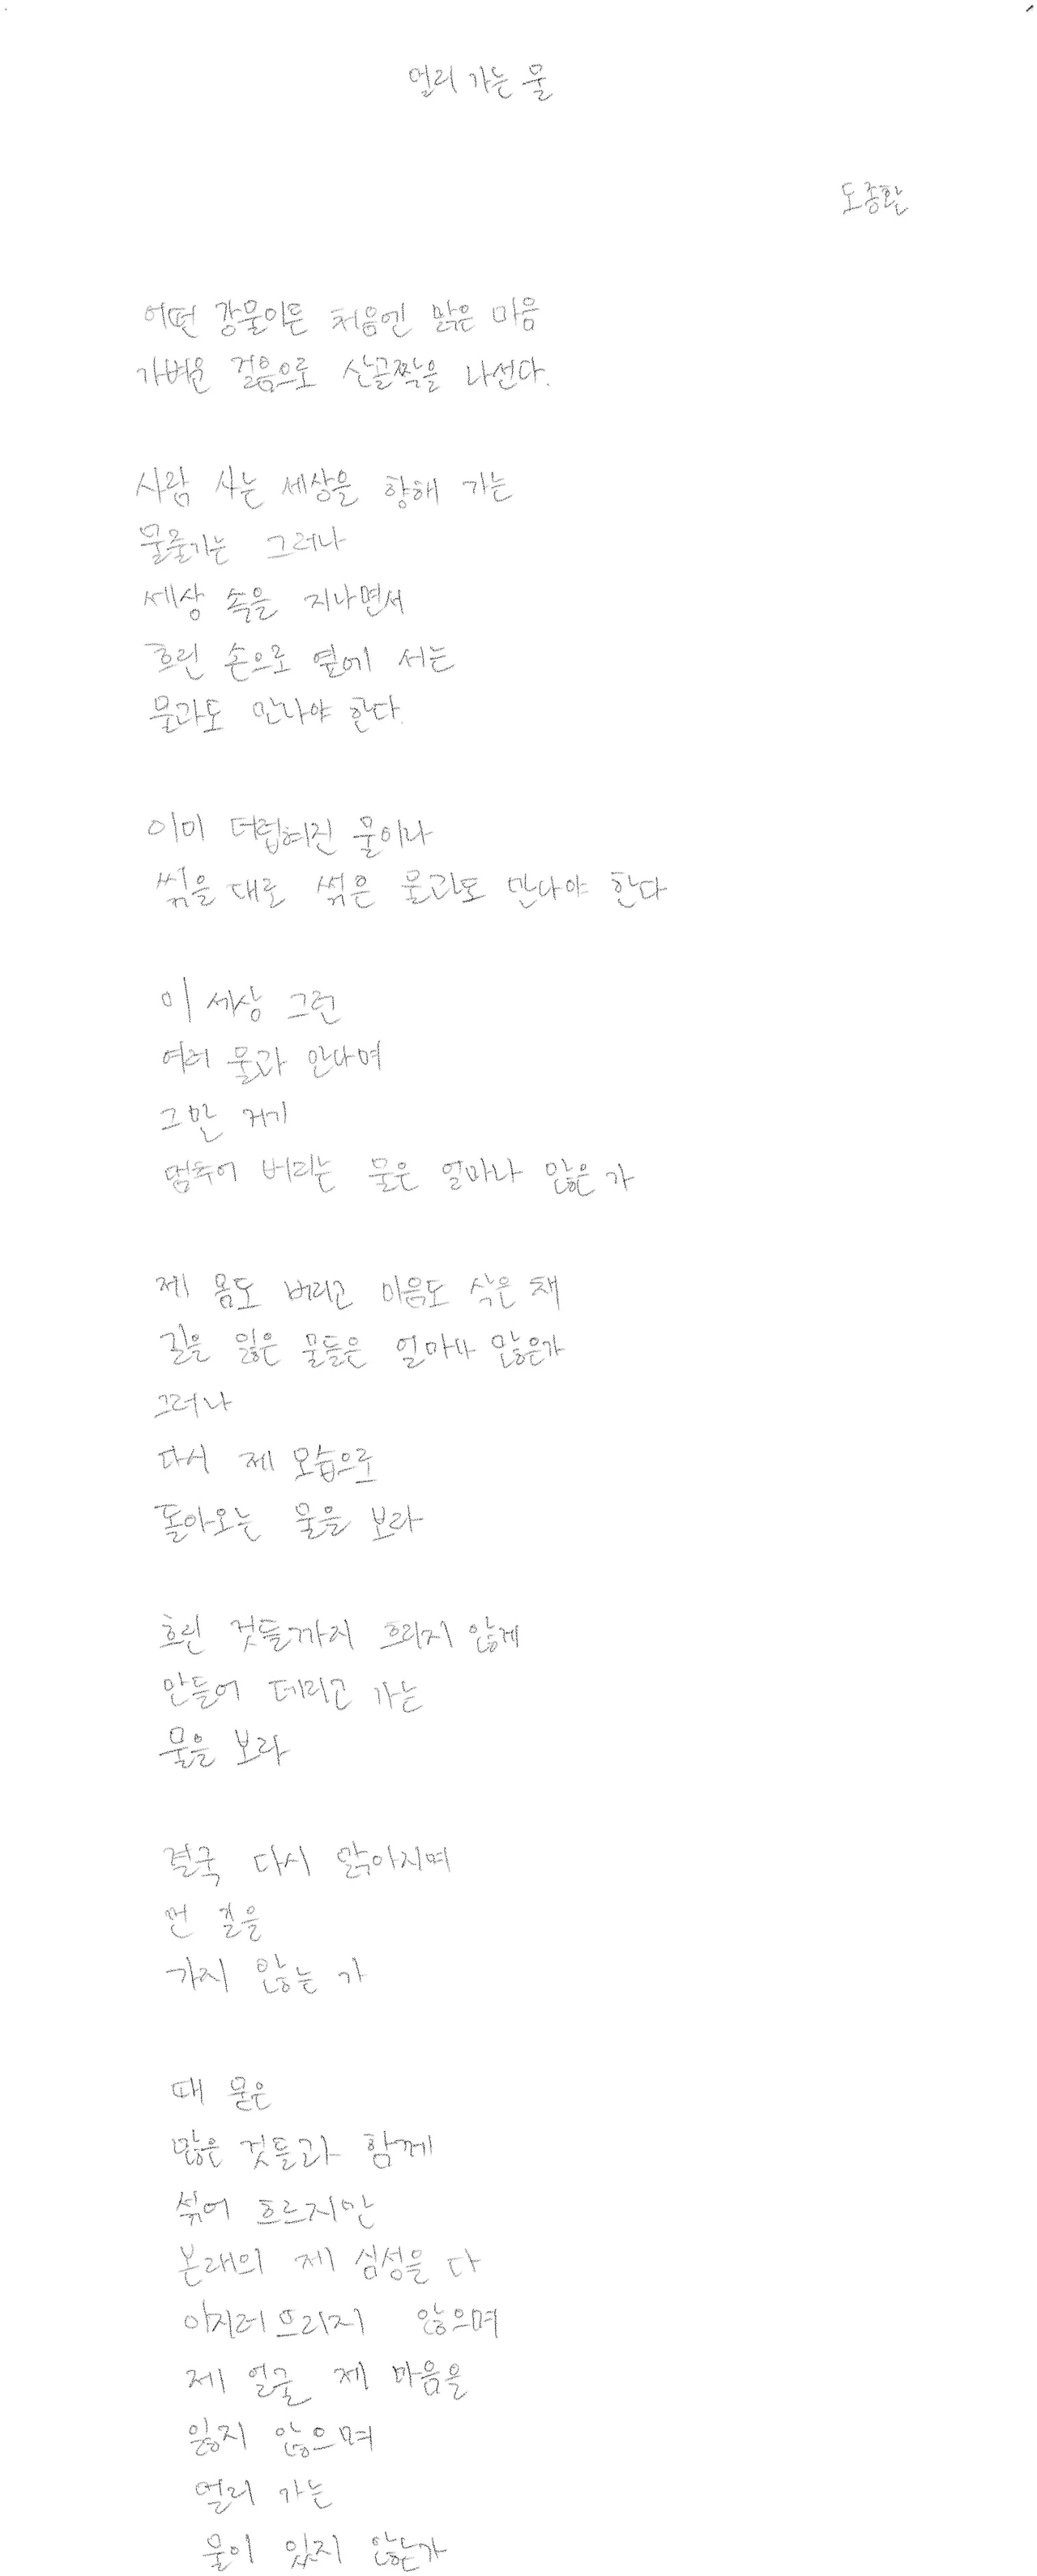 멀리 가는 물
도종환
어떤 강물이든 처음엔 맑은 마음
가벼운 걸음으로 산골짝을 나선다.
사람 사는 세상을 향해 가는
물줄기는 그러나
세상 속을 지나면서
흐린 손으로 옆에 서는
물과도 만나야 한다.
이미 더럽혀진 물이나
썪을 대로 썪은 물과도 만나야 한다
이 세상 그런
여러 물과 만나며
그만 거기
멈추어 버리는 물은 얼마나 많은가
제 몸도 버리고 마음도 삭은 채
길을 잃은 물들은 얼마나 많은가
그러나
다시 제 모습으로
돌아오는 물을 보라
흐린 것들까지 흐리지 않게
만들어 데리고 가는
물을 보라
결국 다시 맑아지며
먼 길을
가지 않는가
때 묻은
많은 것들과 함께
섞여 흐르지만
본래의 제 심성을 다
이지러뜨리지 않으며
제 얼굴 제 마음을
잃지 않으며
멀리 가는
물이 있지 않는가